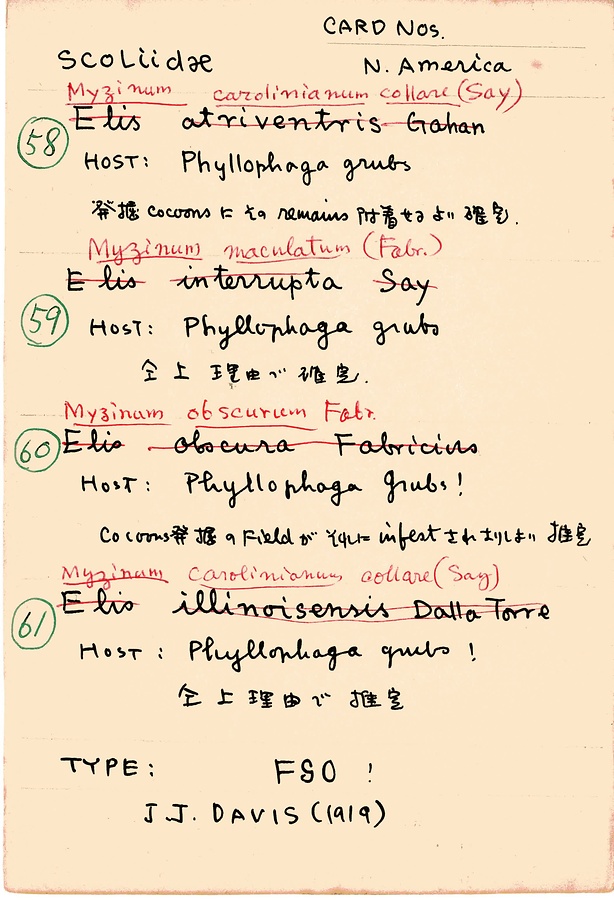 CARD NOS.
SCOLiidæ N. America
Myzinum carolinianum collare (Say)
58 Elis atriventris Gahan
HOST: Phyllophaga grubs
発掘 cocoons に その remains 附着せるより 確定.
Myzinum maculatum (Fabr.)
Elis interrupta Say
59 HOST: Phyllophaga grubs
仝上 理由で 確定.
Myzinum obscurum Fabr.
60 Elis obscura Fabricius
HOST: Phyllophaga grubs!
Cocoons発掘の Field が それに infest されありしより 推定
Myzinum carolinianum collare (Say)
61 Elis illinoisensis Dalla Torre
HOST: Phyllophaga grubs !
仝上理由で 推定
TYPE: FSO !
J.J. DAVIS (1919)